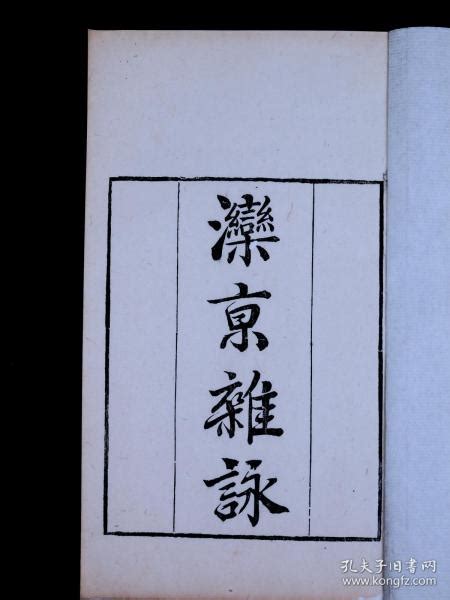 灤京雜詠
孔夫子旧书网
www.kongfz.com